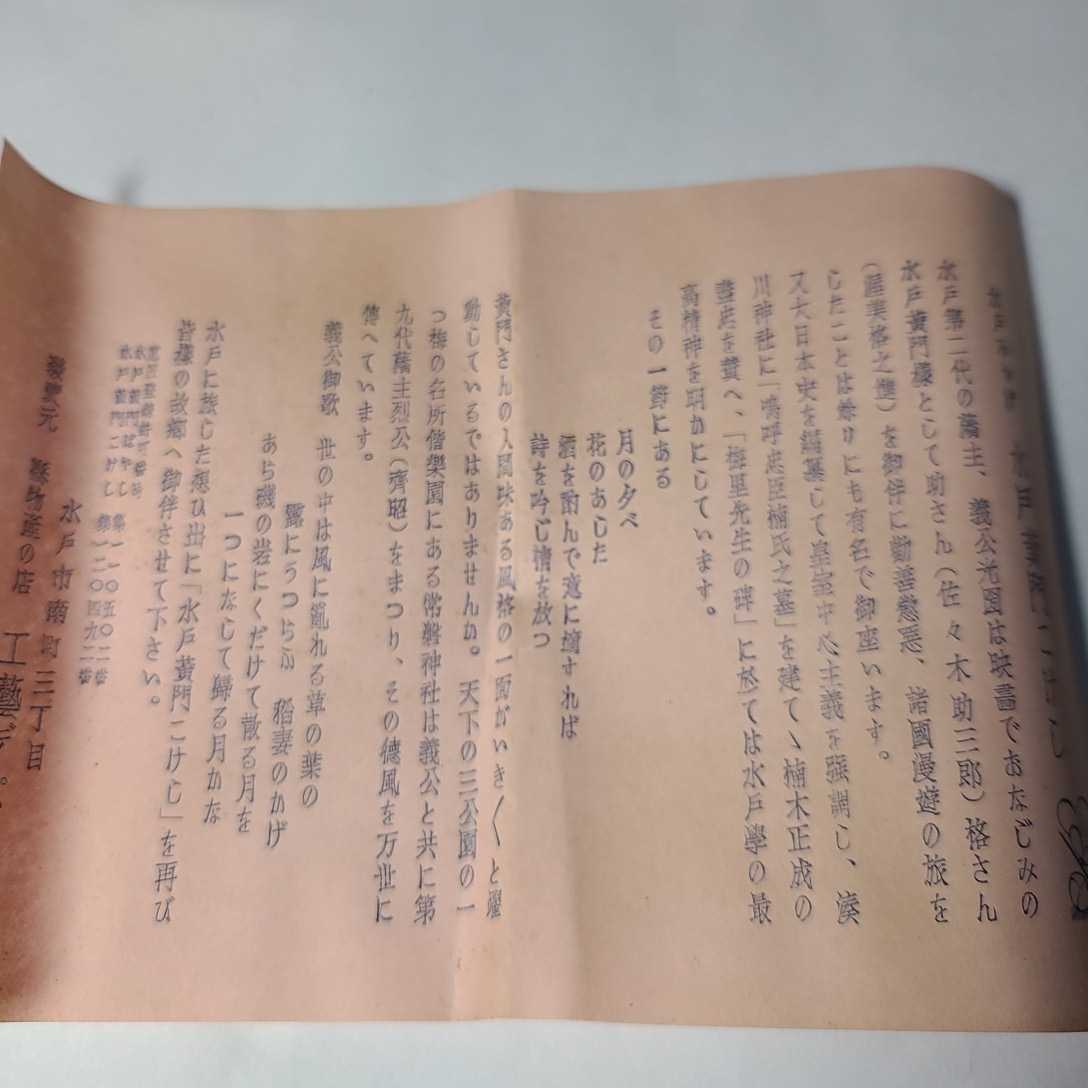 水戸黄門こけし
水戸第二代の藩主、義公光圀は映畫でおなじみの
水戸黄門様として助さん（佐々木助三郎）格さん
（渥美格之進）を御伴に勧善懲悪、諸國漫遊の旅を
したことは餘りにも有名で御座います。
又大日本史を編纂して皇室中心主義を强調し、湊
川神社に「嗚呼忠臣楠氏之墓」を建て、楠木正成の
盡忠を賛へ、「梅里先生の碑」に於ては水戸學の最
高精神を明かにしています。
その一節にある
月の夕べ
花のあした
酒を酌んで意に適すれば
詩を吟じ情を放つ
黄門さんの人間味ある風格の一面がいき〱と躍
動しているではありませんか。天下の三公園の一
つ梅の名所偕樂園にある常磐神社は義公と共に第
九代藩主烈公（齊昭）をまつり、その德風を万世に
傳へています。
義公御歌 世の中は風に亂れる草の葉の
露にうつらふ 稲妻のかげ
あら磯の岩にくだけて散る月を
一つになして歸る月かな
水戸に旅した想ひ出に「水戸黄門こけし」を再び
皆様の故郷へ御伴させて下さい。
水戸黄門ばやし 第一一〇五〇二番
水戸黄門こけし 第一二〇〇四九二番
水戸市南町三丁目
發賣元 縣物産の店 工藝デ